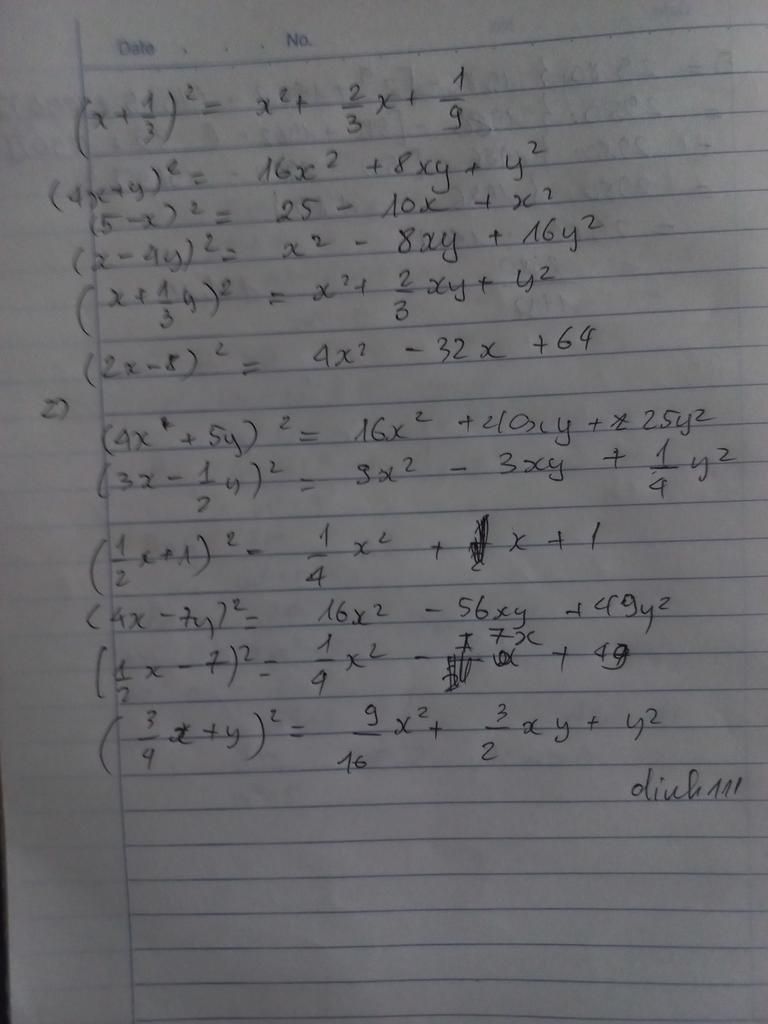 Date . . . No.
(x + 1/3)² = x² + 2/3 x + 1/9
(4x+y)² = 16x² + 8xy + y²
(5-x)² = 25 - 10x + x²
(x - 4y)² = x² - 8xy + 16y²
(x + 1/3 y)² = x² + 2/3 xy + y²
(2x - 8)² = 4x² - 32x + 64
2)
(4x + 5y)² = 16x² + 40xy + 25y²
(3x - 1/2 y)² = 9x² - 3xy + 1/4 y²
(1/2 x + 1)² = 1/4 x² + x + 1
(4x - 7y)² = 16x² - 56xy + 49y²
(1/2 x - 7)² = 1/4 x² - 7x + 49
(3/4 x + y)² = 9/16 x² + 3/2 xy + y²
dinh111